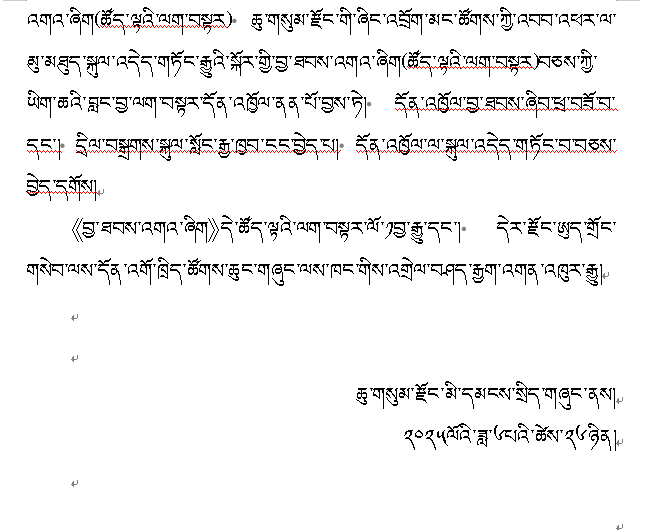 འགའ་ཞིག(ཚོད་ལྟའི་ལག་བསྟར)། ཆུ་གསུམ་རྫོང་གི་ཞིང་འབྲོག་མང་ཚོགས་ཀྱི་འབབ་འཕར་ལ་
མུ་མཐུད་སྐུལ་འདེད་གཏོང་རྒྱུའི་སྐོར་གྱི་བྱ་ཐབས་འགའ་ཞིག(ཚོད་ལྟའི་ལག་བསྟར)བཅས་ཀྱི་
ཡིག་ཆའི་བླང་བྱ་ལག་བསྟར་དོན་འཁྱོལ་ནན་པོ་བྱས་ཏེ། དོན་འཁྱོལ་བྱ་ཐབས་ཞིབ་ཕྲ་བཟོ་བ་
དང་། དྲིལ་བསྒྲགས་སྐུལ་སློང་རྒྱ་ཁྱབ་ངང་བྱེད་པ། དོན་འཁྱོལ་ལ་སྐུལ་འདེད་གཏོང་བ་བཅས་
བྱེད་དགོས།
《བྱ་ཐབས་འགའ་ཞིག》དེ་ཚོད་ལྟའི་ལག་བསྟར་ལོ་༡བྱ་རྒྱུ་དང་། དེར་རྫོང་ཨུད་གྲོང་
གསེབ་ལས་དོན་འགོ་ཁྲིད་ཚོགས་ཆུང་གཞུང་ལས་ཁང་གིས་འགྲེལ་བཤད་རྒྱག་འགན་འཁུར་རྒྱུ།
ཆུ་གསུམ་རྫོང་མི་དམངས་སྲིད་གཞུང་ནས།
༢༠༢༥ལོའི་ཟླ་༦པའི་ཚེས་༢༦ཉིན།